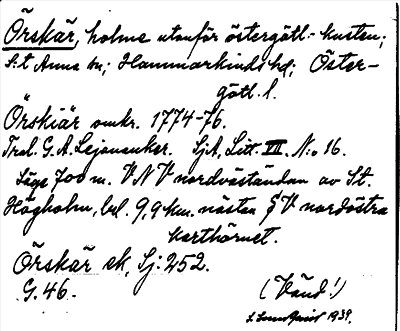 Örskär, holme utanför östergötl.-kusten;
S:t Anna sn; Hammarkinds hd; Öster-
götl. l.
Örskiär omkr. 1774-76.
Trol. G. A. Lejonanker. SjA, Litt. VII. N:o 16.
Läge 700 m. VNV nordväständan av St.
Högholm, bel. 9,9 km. nästan V nordöstra
karthörnet.
Örskär ek, Sj: 252.
G. 46.
(Vänd!)
1939.